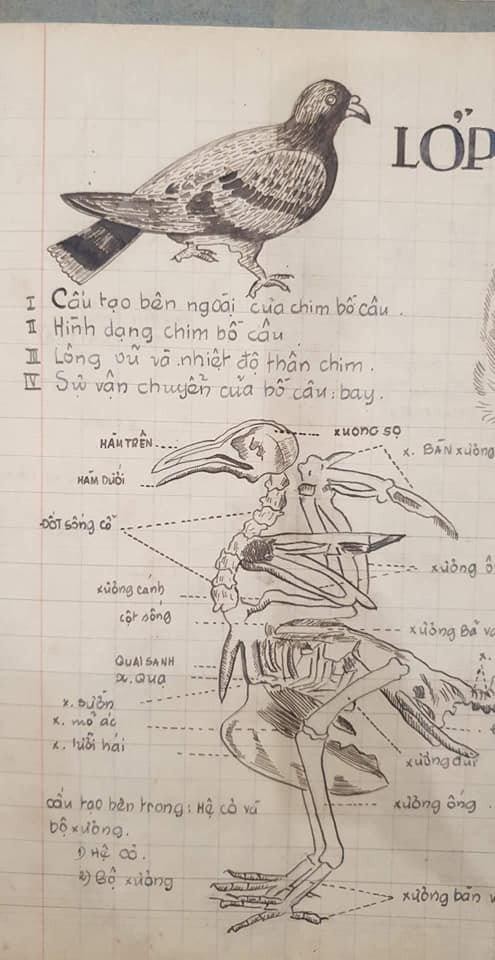 LỚP
I Cấu tạo bên ngoài của chim bồ câu.
II Hình dạng chim bồ câu
III Lông vũ và nhiệt độ thân chim.
IV Sự vận chuyển của bồ câu: bay.
HÀM TRÊN
XƯƠNG SỌ
X. BÀN xương
HÀM DƯỚI
ĐỐT SỐNG CỔ
xương ố
xương cánh
cột sống
xương Bả v
QUAI SANH
X. QUẠ
x. sườn
x. mỏ ác
x. lưỡi hái
xương đùi
cấu tạo bên trong: Hệ cơ và
bộ xương.
xương ống
1) Hệ cơ.
2) Bộ xương
xương bàn